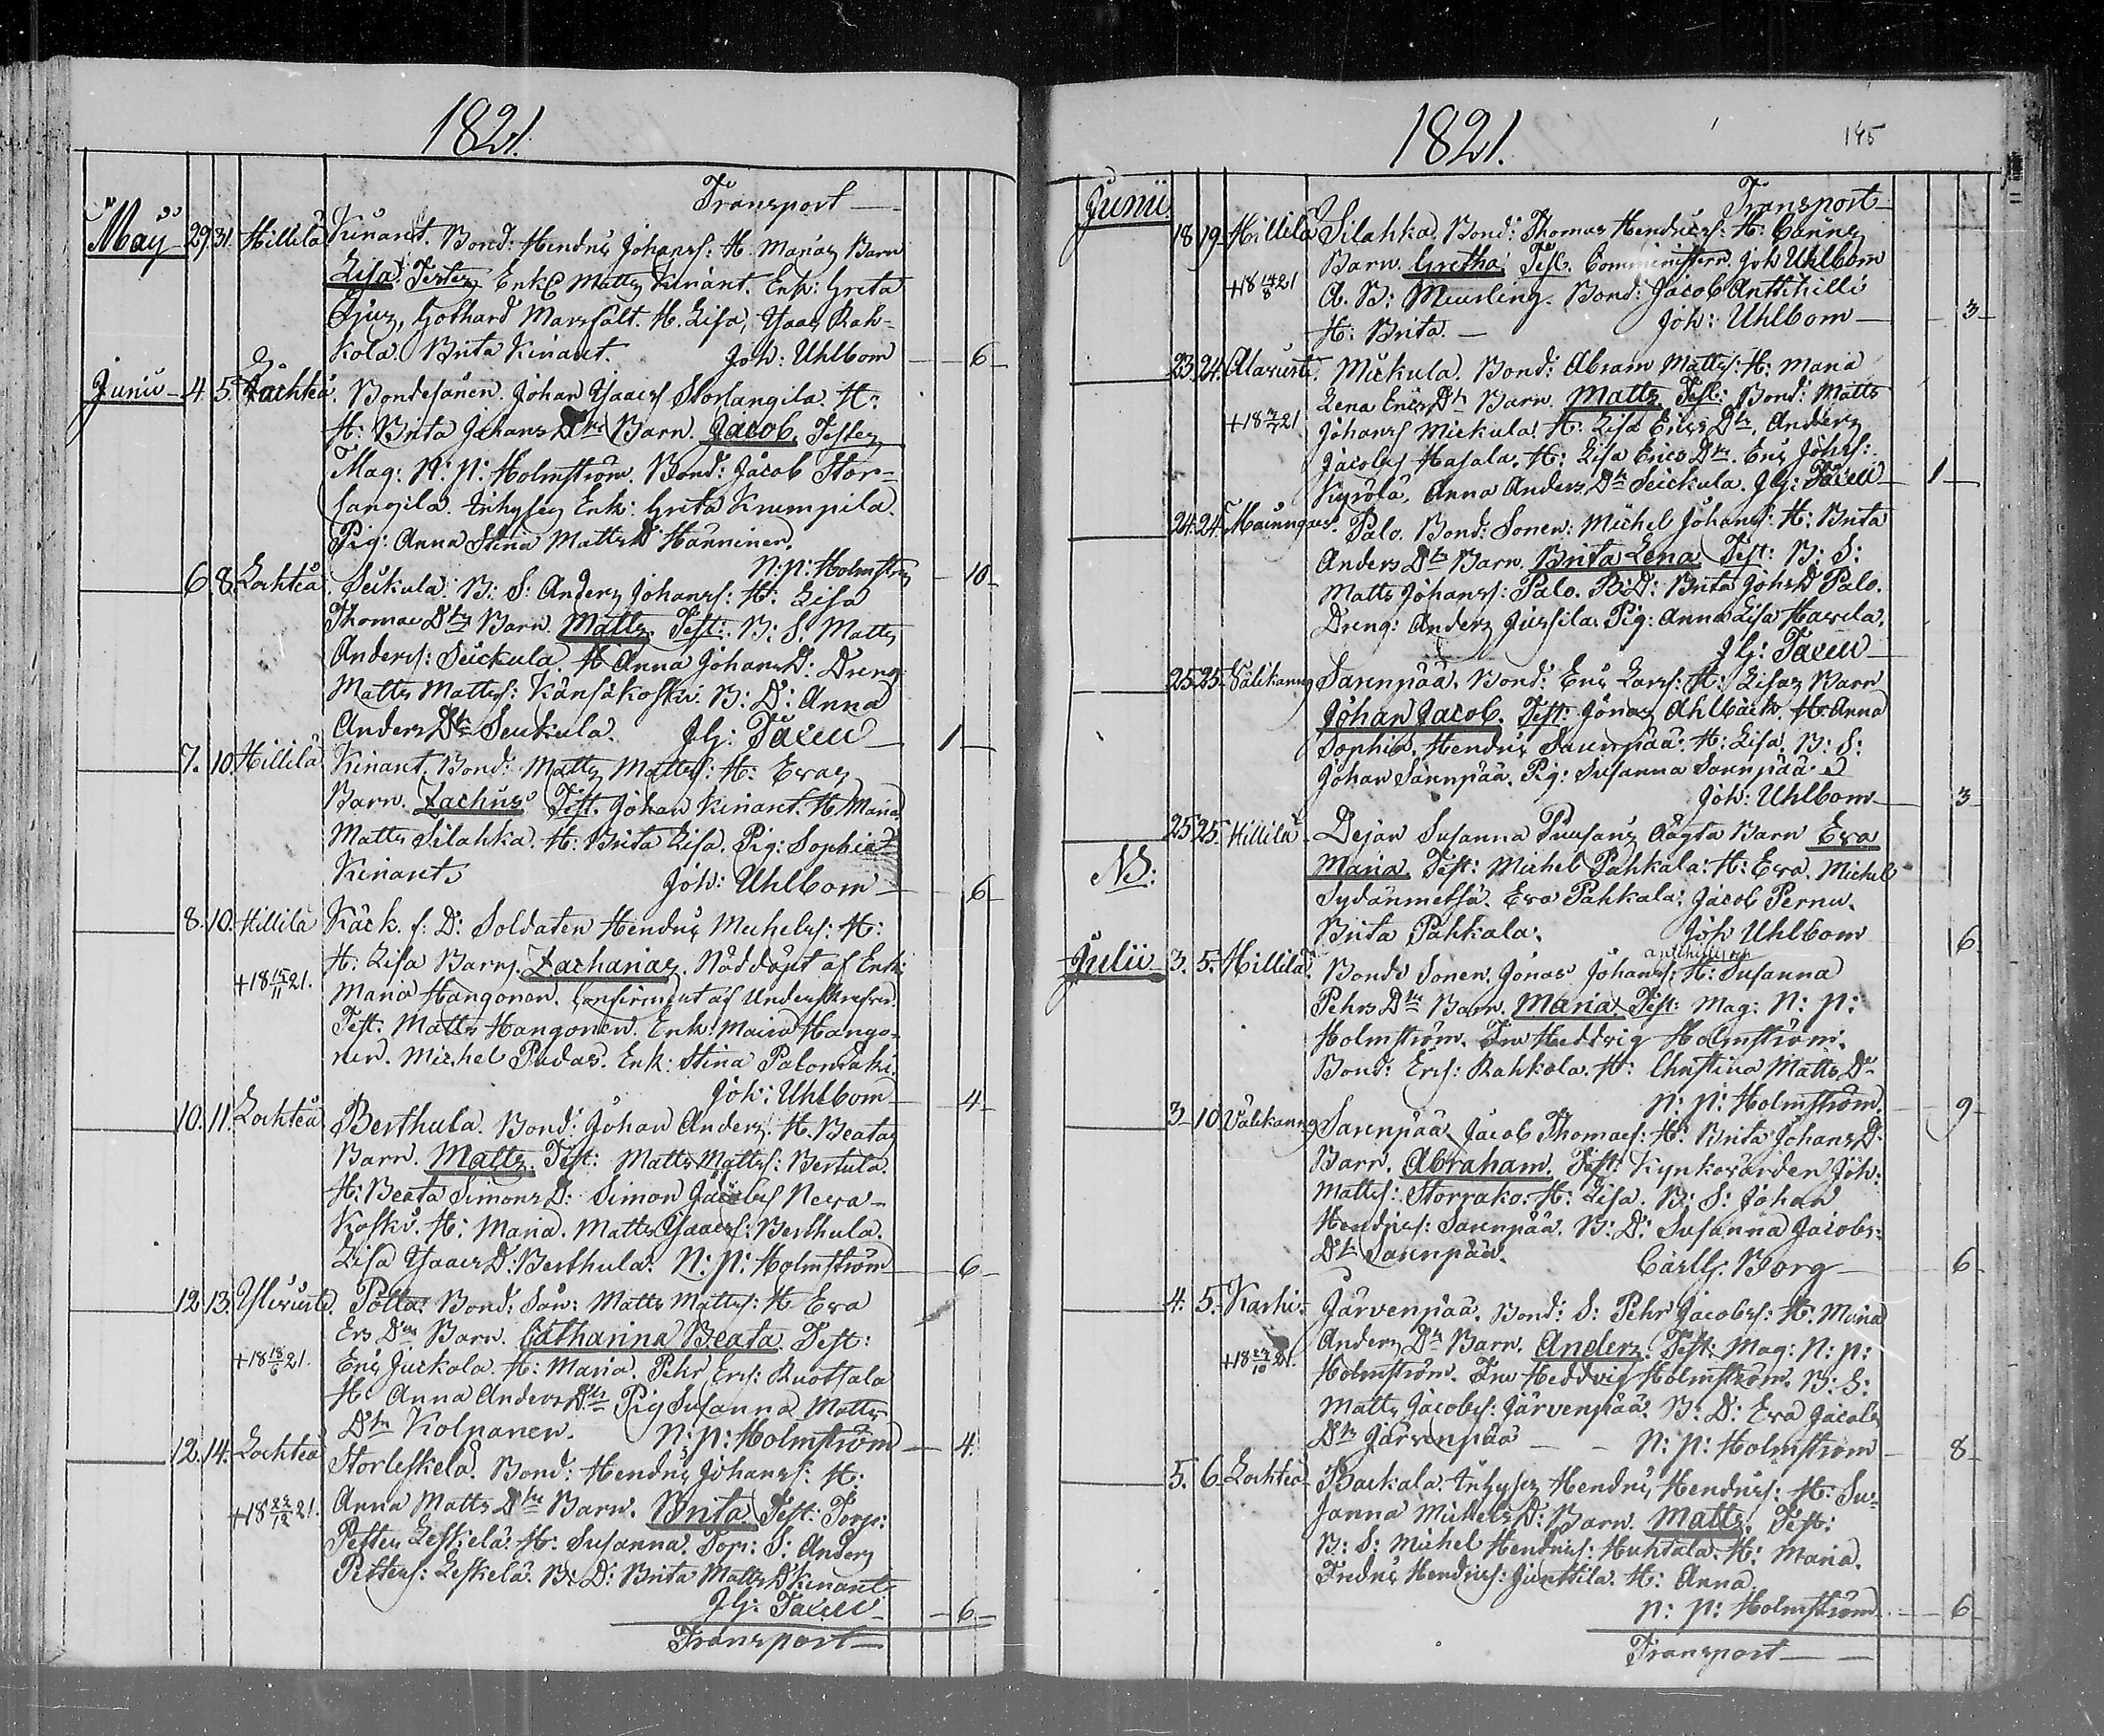 1821.
Transport
May 29. 31. Hillilä Kinant. Bond: Hendric Johanss: H. Marias Barn
Lisa. Testes Enkl Matts Kinant. Enk: Greta
Gothard Marssalt. H. Lisa, Isaac Rah-
kola. Brita Kinant. Joh: Uhlbom 6
Junii 4. 5. Lochteå. Bondesånen. Johan Isaacs Storlangila. H:
H: Brita Johans Dr Barn. Jacob. Testes
Mag: N: P: Holmström. Bond: Jacob Stor-
langila. Inhyses Enk: Greta Krumpila.
Pig: Anna Stina Matts D Hänninen.
N: P: Holmström 10
6. 8. Lochteå. Seikula. B: S: Anders Johanss: H: Lisa
Thomas Dtrs Barn. Matts. Test: B: S: Matts
Anderss: Seickula. H Anna Johans D: Dreng
Matts Mattss: Känsäkoski. B: D: Anna
Anders Dtr Seikula. J G: Taxell 1
7. 10. Hillilä Kinant. Bond: Matts Mattss: H: Evas
Barn. Zachus Test. Johan Kinant. H Maria
Matts Silahka. H: Brita Lisa. Pig: Sophia
Kinant. Joh: Uhlbom 6
8. 10. Hillilä Käck. f: D: Soldaten Hendric Michelss: H:
H: Lisa Barns. Zacharias. Nöddöpt af Enk:
+18 15/11 21. Maria Hangonen. Confirment af Underskrefven.
Test: Matts Hangonen. Enk: Maria Hango-
nen. Michel Padas. Enk: Stina Palomäki.
Joh: Uhlbom 4
10. 11. Lochteå Berthula. Bond: Johan Anders. H. Beatas
Barn. Matts. Test: Matts Mattss: Bertula.
H: Beata Simons D: Simon Jacobss Neva-
koski. H: Maria. Matts Isaacs: Berthula.
Lisa Isaacs D: Berthula. N: P: Holmström 6
12. 13. Yliviirde. Polla. Bond: Sån: Matts Mattss: H Eva
Ers Dtrs Barn. Catharina Beata. Test:
+18 18/6 21. Eric Juckola. H: Maria. Pehr Erss: Ruotsala
H: Anna Anders Dtr Pig Susanna Matts
Dtr Kolpanen. N: P: Holmström 4
12. 14. Lochteå Storleskelä. Bond: Hendric Johanss: H:
+18 22/12 21. Anna Matts Dtr Barn. Brita. Test: Torp:
Petter Leskelä. H: Susanna. Torp: S: Anders
Petterss: Leskelä. B: D: Brita Matts D Kinant
J G: Taxell 6
Transport
1821. 145
Transport
Junii. 18. 19. Hillilä Silahka. Bond: Thomas Hendricss: H: Carins
Barn. Gretha. Test. Comministern. Joh Uhlbom
+18 14/8 21 A. B: Meurling. Bond: Jacob Anttihilli
H: Brita. Joh: Uhlbom 3
23. 24. Alaviirte. Mickula. Bond: Abram Mattss: H: Maria
Lena Erics Dr Barn. Matts. Test: Bond: Matts
+18 21 Johans Mickula. H: Lisa Erics Dtr. Anders
Jacobss Hasala. H: Lisa Erics Dtr. Eric Johss:
Kyrölä. Anna Anders Dtr Seickula. J G: Taxell 1
24. 24. Palo. Bond: Sonen: Michel Johanss: H: Brita
Anders Dtr Barn. Brita Lena Test: B: S:
Matts Johanss: Palo. B: D: Brita Johs D Palo.
Dreng: Anders Jussila. Pig: Anna Lisa Havela.
J G: Taxell
25. 25. Välikanns Sarenpää. Bond: Eric Larss: H: Lisas Barn
Johan Jacob. Test: Jonas Ahlbäck. H: Anna
Sophia. Hendric Sarenpää. H: Lisa. B: S:
Johan Särenpää. Pig: Susanna Sorenpää.
Joh: Uhlbom 3
25. 25. Hillilä Dejan Susanna Puusaris Oägta Barn Eva
NB: Maria. Test: Michel Pahkala: H: Eva. Michel
Sydänmetsä. Eva Pahkala. Jacob Pernu.
Brita Pahkala. Joh Uhlbom 6
Julii 3. 5. Hillilä. Bonde Sonen. Jonas Johanss: H: Susanna
Pehrs Dtr Barn. Maria. Test: Mag: N: P:
Holmström. Fru Heddvig Holmström.
Bond: Erss: Rahkola. H: Christina Matts Dr
N: P: Holmström. 9
3. 10. Välikanns Sarenpää. Jacob Thomass: H: Brita Johans D.
Barn. Abraham. Test: Kyrkovärden Joh:
Mattss: Storrako. H: Lisa. B: S: Johan
Hendricss: Sarenpää. B: D: Susanna Jacobs:
Dtr Sarenpää. Carl S: Borg 6
4. 5. Karhi. Järvenpää. Bond: S: Pehr Jacobss: H: Maria
Anders Dtr Barn. Anders. Test: Mag: N: P:
+18 10 21. Holmström. Fru Heddvig Holmström. B: S:
Matts Jacobss: Järvenpää. B: D: Eva Jacobs
Dtr Järvenpää N: P: Holmström 8
5. 6. Lochteå Backala. Inhyses Hendric Hendricss: H: Su-
sanna Michels D: Barn. Matts. Test:
B: S: Michel Hendricss: Huhtala. H: Maria.
Fredric Hendricss: Junttila. H: Anna.
N: P: Holmström 6
Transport